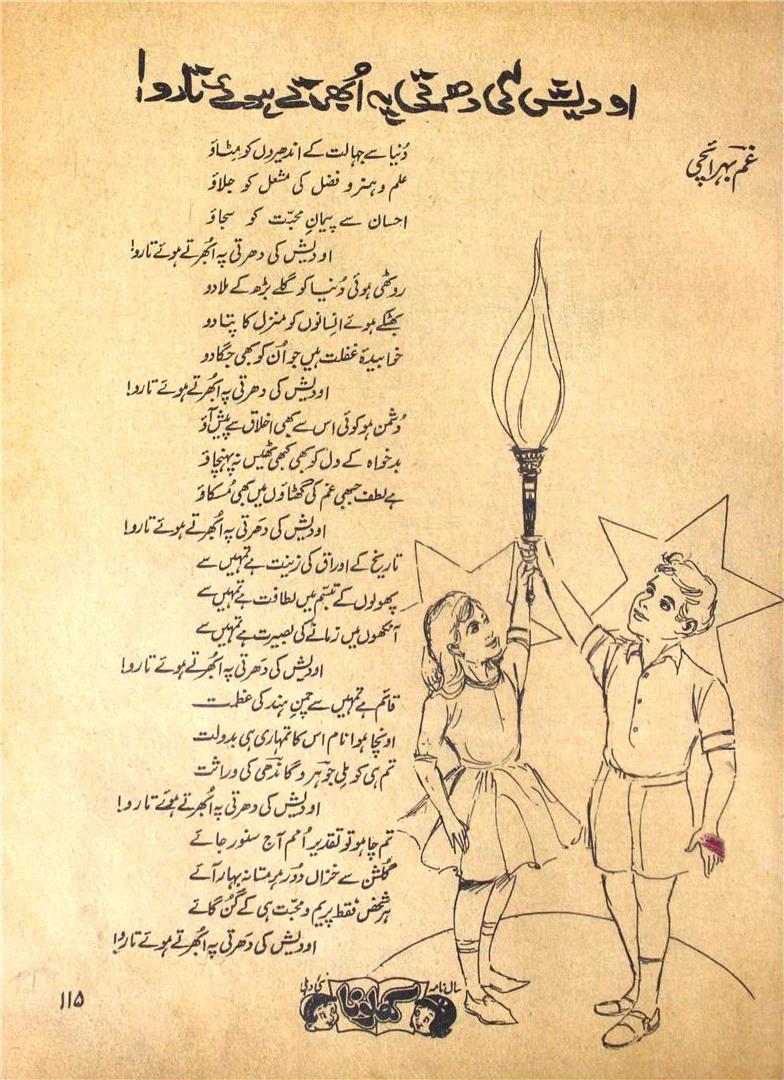 او دیش کی دھرتی پہ اُبھرتے ہوئے تارو!
غم بہرائچی
دُنیا سے جہالت کے اندھیروں کو مِٹاؤ
علم و ہنر و فضل کی مشعل کو جلاؤ
احسان سے پیمانِ محبّت کو سجاؤ
او دیش کی دھرتی پہ اُبھرتے ہوئے تارو!
روٹھی ہوئی دُنیا کو گلے بڑھ کے ملا دو
بھٹکے ہوئے انسانوں کو منزل کا پتا دو
خوابیدۂ غفلت ہیں جو اُن کو بھی جگا دو
او دیش کی دھرتی پہ اُبھرتے ہوئے تارو!
دُشمن ہو کوئی اس سے بھی اخلاق سے پیش آؤ
بدخواہ کے دل کو بھی کبھی ٹھیس نہ پہنچاؤ
ہے لطف جبھی غم کی گھٹاؤں میں بھی مُسکاؤ
او دیش کی دھرتی پہ اُبھرتے ہوئے تارو!
تاریخ کے اوراق کی زینت ہے تمہیں سے
پھولوں کے تبسّم میں لطافت ہے تمہیں سے
آنکھوں میں زمانے کی بصیرت ہے تمہیں سے
او دیش کی دھرتی پہ اُبھرتے ہوئے تارو!
قائم ہے تمہیں سے چمنِ ہند کی عظمت
اونچا ہوا نام اس کا تمہاری ہی بدولت
تم ہی کو ملی جوہر و گاندھی کی وراثت
او دیش کی دھرتی پہ اُبھرتے ہوئے تارو!
تم چاہو تو تقدیرِ اُمم آج سنور جائے
گلشن سے خزاں دُور ہو مستانہ بہار آئے
ہر شخص فقط پریم و محبّت ہی کے گُن گائے
او دیش کی دھرتی پہ اُبھرتے ہوئے تارو!
سالنامہ کھلونا نئی دہلی
۱۱۵